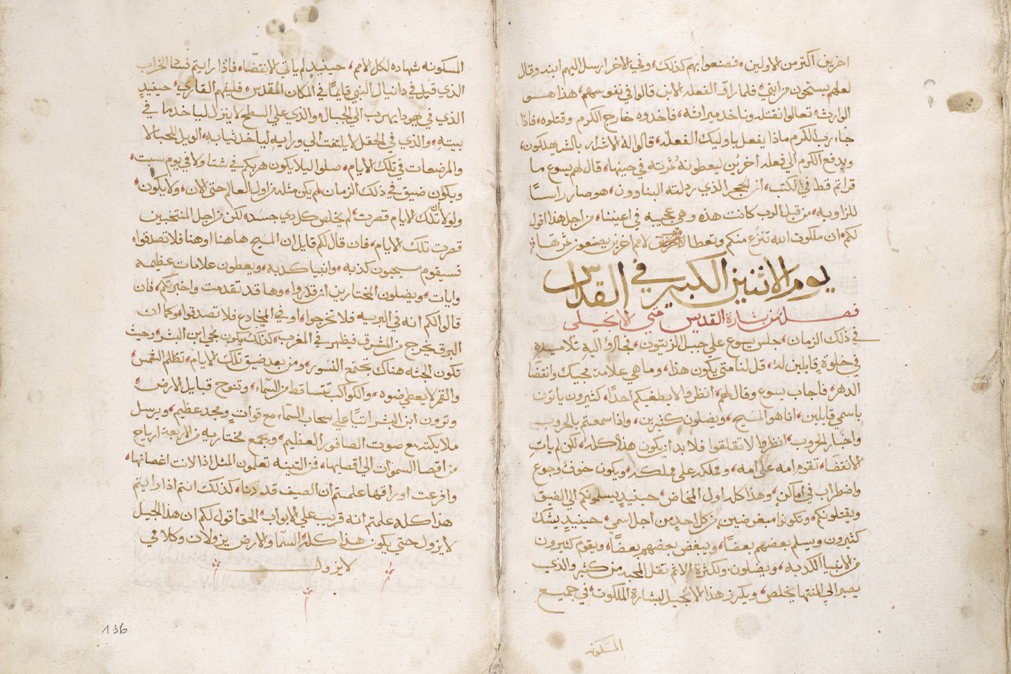 اخرين اكتر من الاولين، فصنعوا بهم كذلك، وفي الاخر ارسل اليهم ابنه وقال
لعلهم يستحيون من ابني، فلما راوا الفعله الابن قالوا في نفوسهم، هذا هو
الوارث، تعالوا نقتله وناخذ ميراثه، فاخذوه خارج الكرم وقتلوه، فاذا
جا رب الكرم ماذا يفعل باوليك الفعله، قالوا له الاشرار بالشر يهلكون،
ويدفع الكرم الي فعله اخرين يعطونه ثمرته في حينها، قال لهم يسوع ما
قراتم قط في الكتب، ان الحجر الذي رذلته البناوون، هو صار راسا
للزاويه، من قبل الرب كانت هذه وهي عجيبه في اعيننا، من اجل هذا اقول
لكم، ان ملكوت الله تنزع منكم ويعطا لامم اخرين يصنعون ثمرتها
يوم الاثنين الكبير في القداس
فصل من بشارة القديس متي الانجيلي
في ذلك الزمان، جلس يسوع علي جبل الزيتون، فجااوا اليه تلاميده
في خلوة قايلين له، قل لنا متي يكون هذا، وما هي علامة مجيك وانقضا
الدهر، فاجاب يسوع وقال لهم، انظروا لا يطغيكم احدا، كثيرون ياتون
باسمي قايلين، انا هو المسيح، ويضلون كثيرين، واذا سمعتم بالحروب
واخبار الحروب، انظروا لا تقلقوا، فلا بد ان يكون هذا كله، لكن لم يات
الانقضا، تقوم امه علي امه، ومملكه علي مملكه، ويكون خوف وجوع
واضطراب في اماكن، وهذا كله اول المخاض، حينيدٍ يسلمونكم الي الضيق
ويقتلونكم، وتكونوا مبغوضين من كل احد من اجل اسمي، حينيدٍ يشك
كثيرون ويسلم بعضهم بعضًا، ويبغض بعضهم بعضًا، ويقوم كثيرون
من الانبيا الكدبه، ويضلون ولكثرة الاثم تقل المحبه من كثير والذي
يصبر الي المنتها يخلص، ويكرز هذا الانجيل لبشارة الملكوت، في جميع
المسكونه
المسكونه شهاده لكل الامم، حينيدٍ ياتي الانقضا، فاذا رايتم فساد الخراب
الذي قيل في دانيال النبي قايمًا في المكان المقدس، فليفهم القاري، حينيدٍ
الذي في يهودا يهرب الي الجبال والذي علي السطح لا ينزل لياخد ما في
بيته، والذي في الحقل لا يلتفت الي ورايه لياخد ثيابه، الويل للحبالا
والمرضعات في تلك الايام، صلوا ليلا يكون هربكم في شتا، ولا في يوم سبت،
ويكون ضيق في ذلك الزمان، لم يكن مثله من اول العالم حتي الان، ولا يكون،
ولولا ان تلك الايام قصرت، لم يخلص كل دي جسد، لكن من اجل المنتخبين
قصرت تلك الايام، فان قال لكم قايل ان المسيح هاهنا اوهنا فلا تصدقوا،
فسيقوم مسيحون كدبه، وانبيا كدبه، ويعطون علامات عظيمه
وايات، ويضلون المختارين ان قدروا، وها قد تقدمت واخبرتكم، فان
قالوا لكم انه في البريه فلا تخرجوا، او في المخادع فلا تصدقوا، وكما ان
البرق يخرج من المشرق فيظهر في المغرب، كدلك يكون مجي ابن البشر، وحيث
تكون الجثه هناك تجتمع النسور، ومن بعد ضيق تلك الايام، تظلم الشمس،
والقمر لا يعطي ضوه، والكواكب تتساقط من السما، وتنوح قبايل الارض،
وترون ابن البشر اتيًا علي سحاب السما، مع قوات ومجد عظيم، ويرسل
ملايكته مع صوت الصافور العظيم، ويجمع مختاريه من الاربعة ارياح
من اقصا السموات الي اقصاها، فمن التينه تعلمون المثل اذا لانت اغصانها،
وافرعت اوراقها علمتم ان الصيف قد دنا، كذلك انتم اذا رايتم
هذا كله، علمتم انه قريب علي الابواب، الحق اقول لكم ان هذا الجيل
لا يزول حتي يكون هذا كله، السما والارض يزولان، وكلامي
لا يزول
136